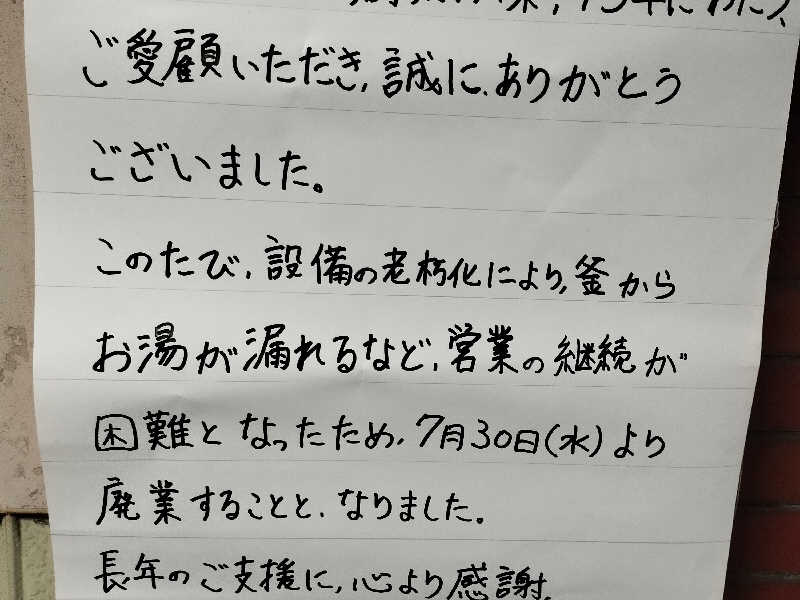 ご愛顧いただき、誠に、ありがとう
ございました。
このたび、設備の老朽化により、釜から
お湯が漏れるなど、営業の継続が
困難となったため、7月30日(水)より
廃業することと、なりました。
長年のご支援に、心より感謝